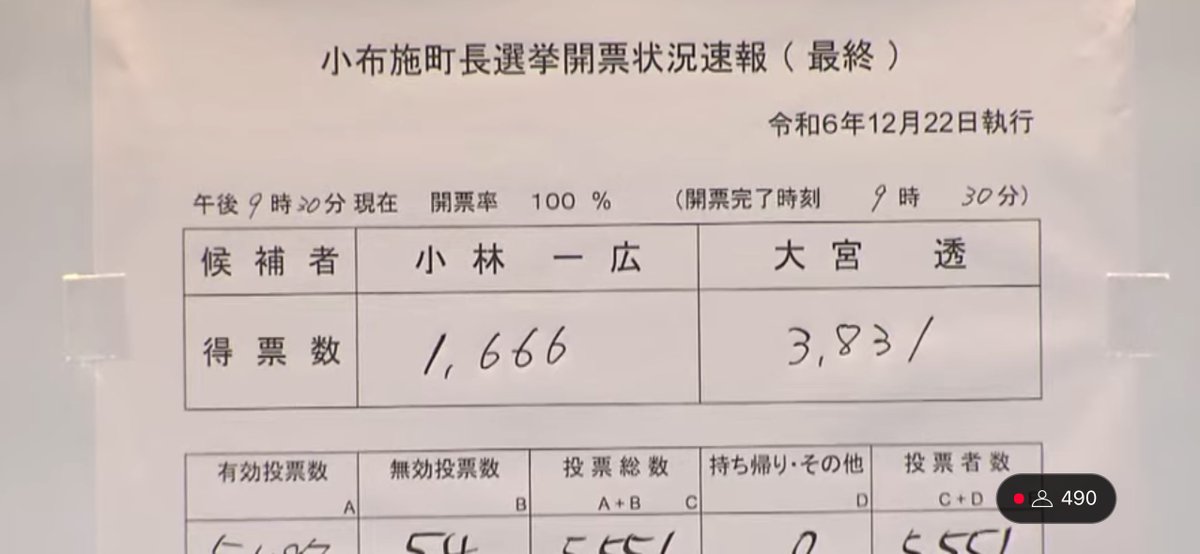 小布施町長選挙開票状況速報（ 最終 ）
令和6年12月22日執行
午後 9 時 30 分 現在 開票率 100 % （開票完了時刻 9 時 30 分）
候補者 小林 一広 大宮 透
得票数 1,666 3,831
有効投票数 無効投票数 投票総数 持ち帰り・その他 投票者数
A B A+B C D C+D
54 5551 0 5551
490